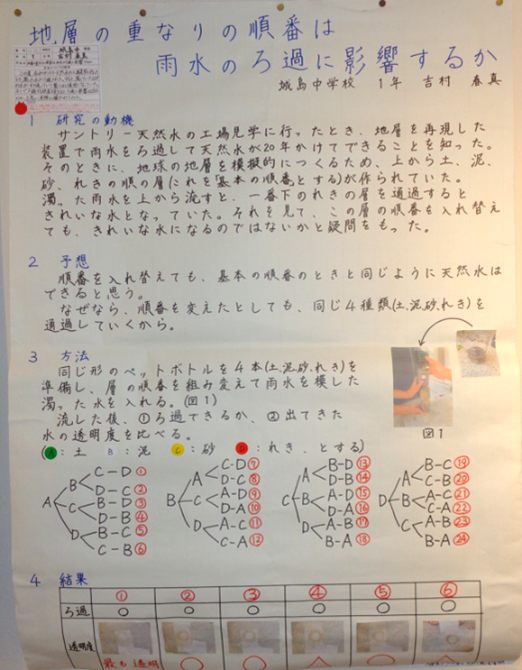 地層の重なりの順番は
雨水のろ過に影響するか
城島中学校 1年 吉村 春真
1 研究の動機
サントリー天然水の工場見学に行ったとき、地層を再現した
装置で雨水をろ過して天然水が20年かけてできることを知った。
そのときに、地球の地層を模擬的につくるため、上から土、泥、
砂、れきの順の層(これを基本の順番とする)が作られていた。
濁った雨水を上から流すと、一番下のれきの層を通過すると
きれいな水となっていた。それを見て、この層の順番を入れ替え
ても、きれいな水になるのではないかと疑問をもった。
2 予想
順番を入れ替えても、基本の順番のときと同じように天然水は
できると思う。
なぜなら、順番を変えたとしても、同じ4種類(土、泥、砂、れき)を
通過していくから。
3 方法
同じ形のペットボトルを4本(土、泥、砂、れき)を
準備し、層の順番を組み変えて雨水を模した
濁った水を入れる。(図1)
流した後、①ろ過できるか、②出てきた
水の透明度を比べる。
図1
(A:土 B:泥 C:砂 D:れき、とする)
A
B
C-D ①
D-C ②
C
B-D ③
D-B ④
D
B-C ⑤
C-B ⑥
B
A
C-D ⑦
D-C ⑧
C
A-D ⑨
D-A ⑩
D
A-C ⑪
C-A ⑫
C
A
B-D ⑬
D-B ⑭
B
A-D ⑮
D-A ⑯
D
A-B ⑰
B-A ⑱
D
A
B-C ⑲
C-B ⑳
B
A-C ㉑
C-A ㉒
C
A-B ㉓
B-A ㉔
4 結果
① ② ③ ④ ⑤ ⑥
ろ過 ○ ○ ○ ○ ○ ○
透明度
最も透明 ○ ○ △ ○ △